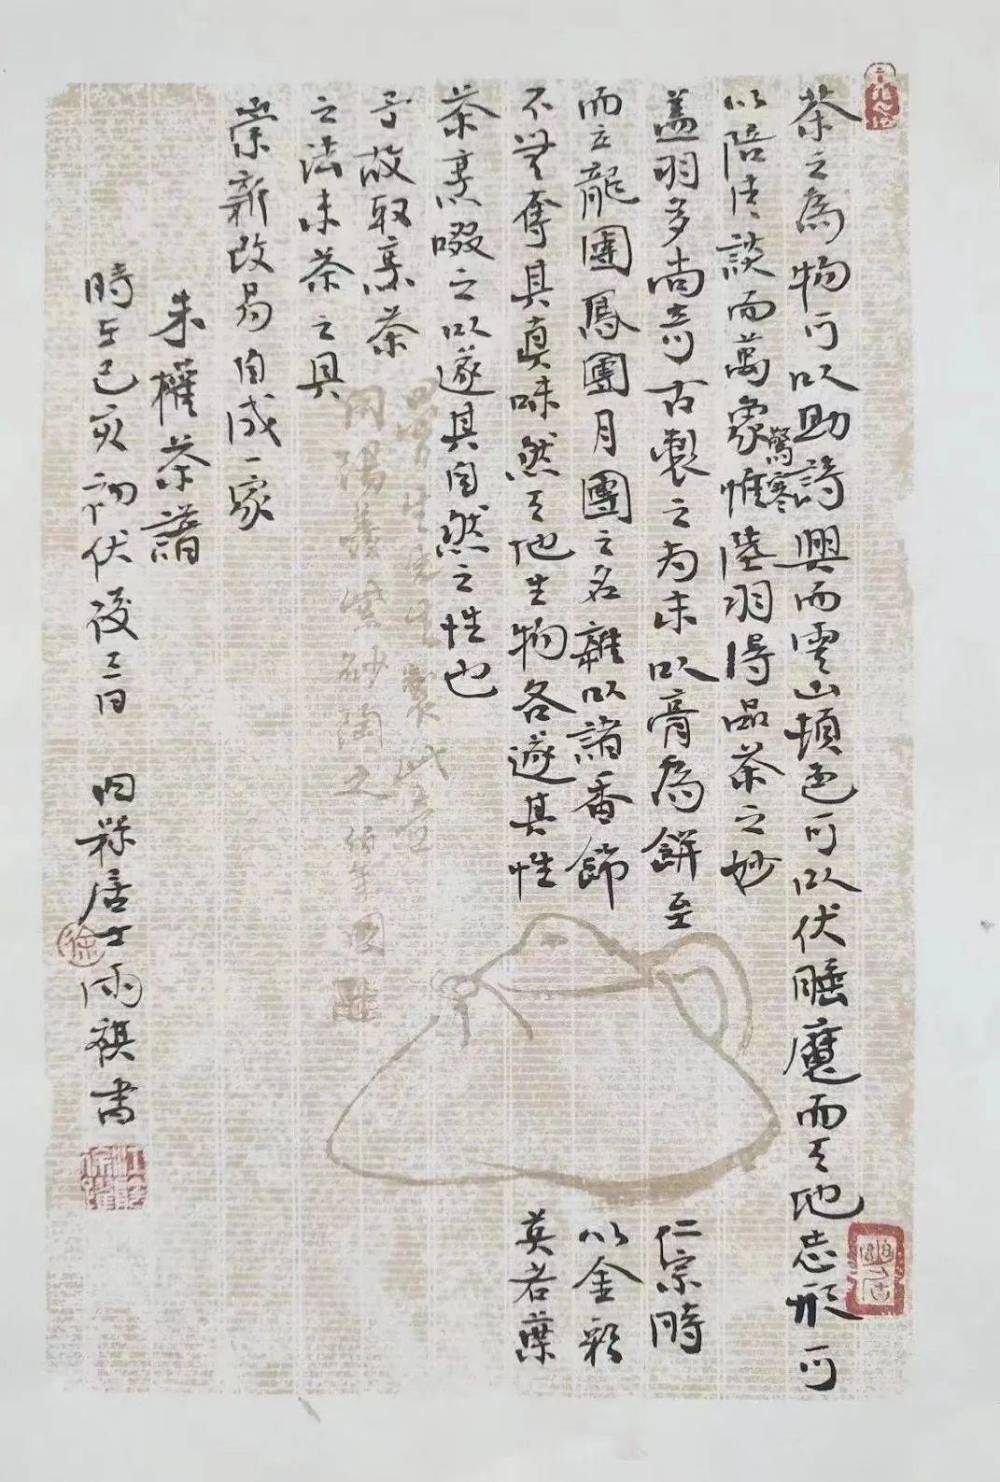 茶之為物可以助詩興而雲山頓色可以伏睡魔而天地忘形可
以陪清談而萬象驚寒惟陸羽得品茶之妙
蓋羽多尚奇古製之為末以膏為餅至仁宗時
而立龍團鳳團月團之名雜以諸香飾以金彩
不無奪其真味然天地生物各遂其性英若葉
茶烹啜之以遂其自然之性也
予故取烹茶
之法末茶之具
崇新改易自成一家
朱權茶譜
時在己亥初伏後二日 居士雨祺書
生先生製此壺
陽羨紫砂陶之
徐